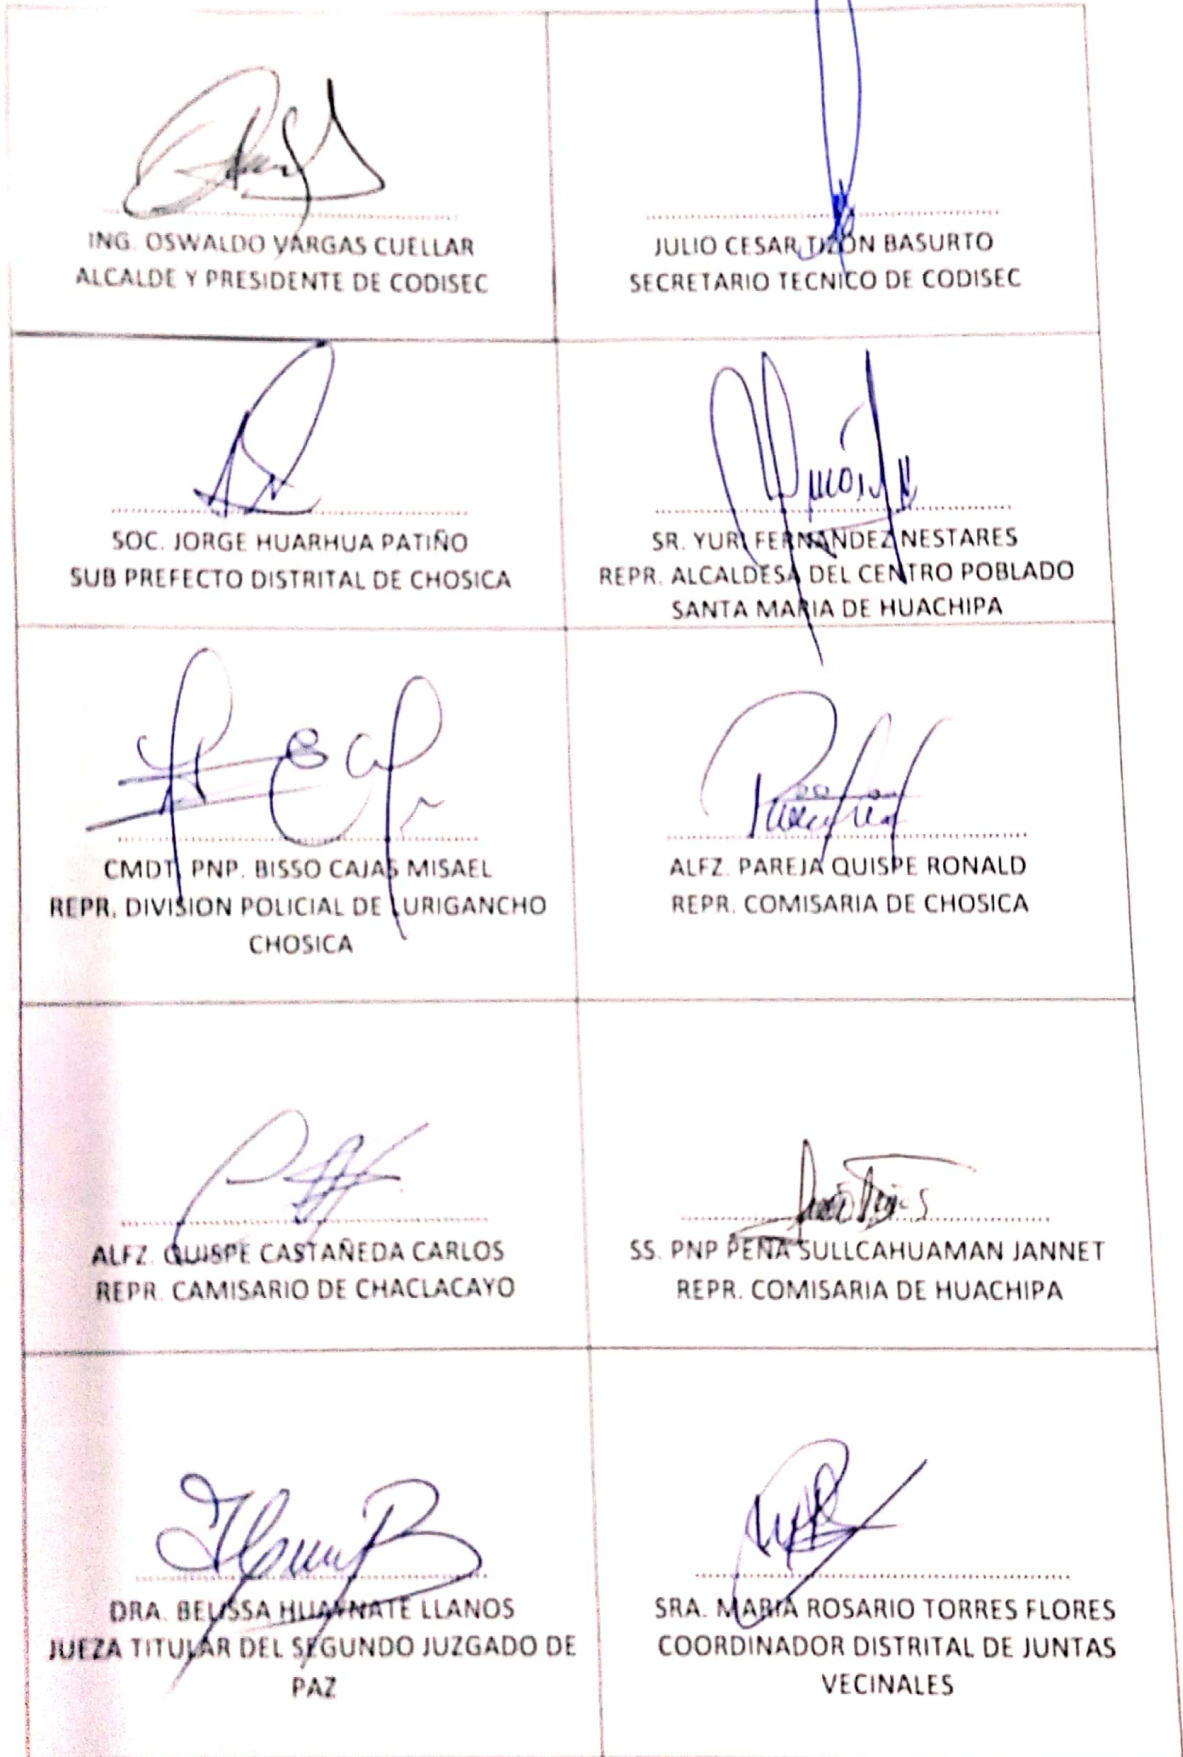 ING. OSWALDO VARGAS CUELLAR
ALCALDE Y PRESIDENTE DE CODISEC
JULIO CESAR TIZON BASURTO
SECRETARIO TECNICO DE CODISEC
SOC. JORGE HUARHUA PATIÑO
SUB PREFECTO DISTRITAL DE CHOSICA
SR. YURI FERNANDEZ NESTARES
REPR. ALCALDESA DEL CENTRO POBLADO
SANTA MARIA DE HUACHIPA
CMDT. PNP. BISSO CAJAS MISAEL
REPR. DIVISION POLICIAL DE LURIGANCHO
CHOSICA
ALFZ. PAREJA QUISPE RONALD
REPR. COMISARIA DE CHOSICA
ALFZ. QUISPE CASTAÑEDA CARLOS
REPR. CAMISARIO DE CHACLACAYO
SS. PNP PEÑA SULLCAHUAMAN JANNET
REPR. COMISARIA DE HUACHIPA
DRA. BELISSA HUAYNATE LLANOS
JUEZA TITULAR DEL SEGUNDO JUZGADO DE
PAZ
SRA. MARIA ROSARIO TORRES FLORES
COORDINADOR DISTRITAL DE JUNTAS
VECINALES